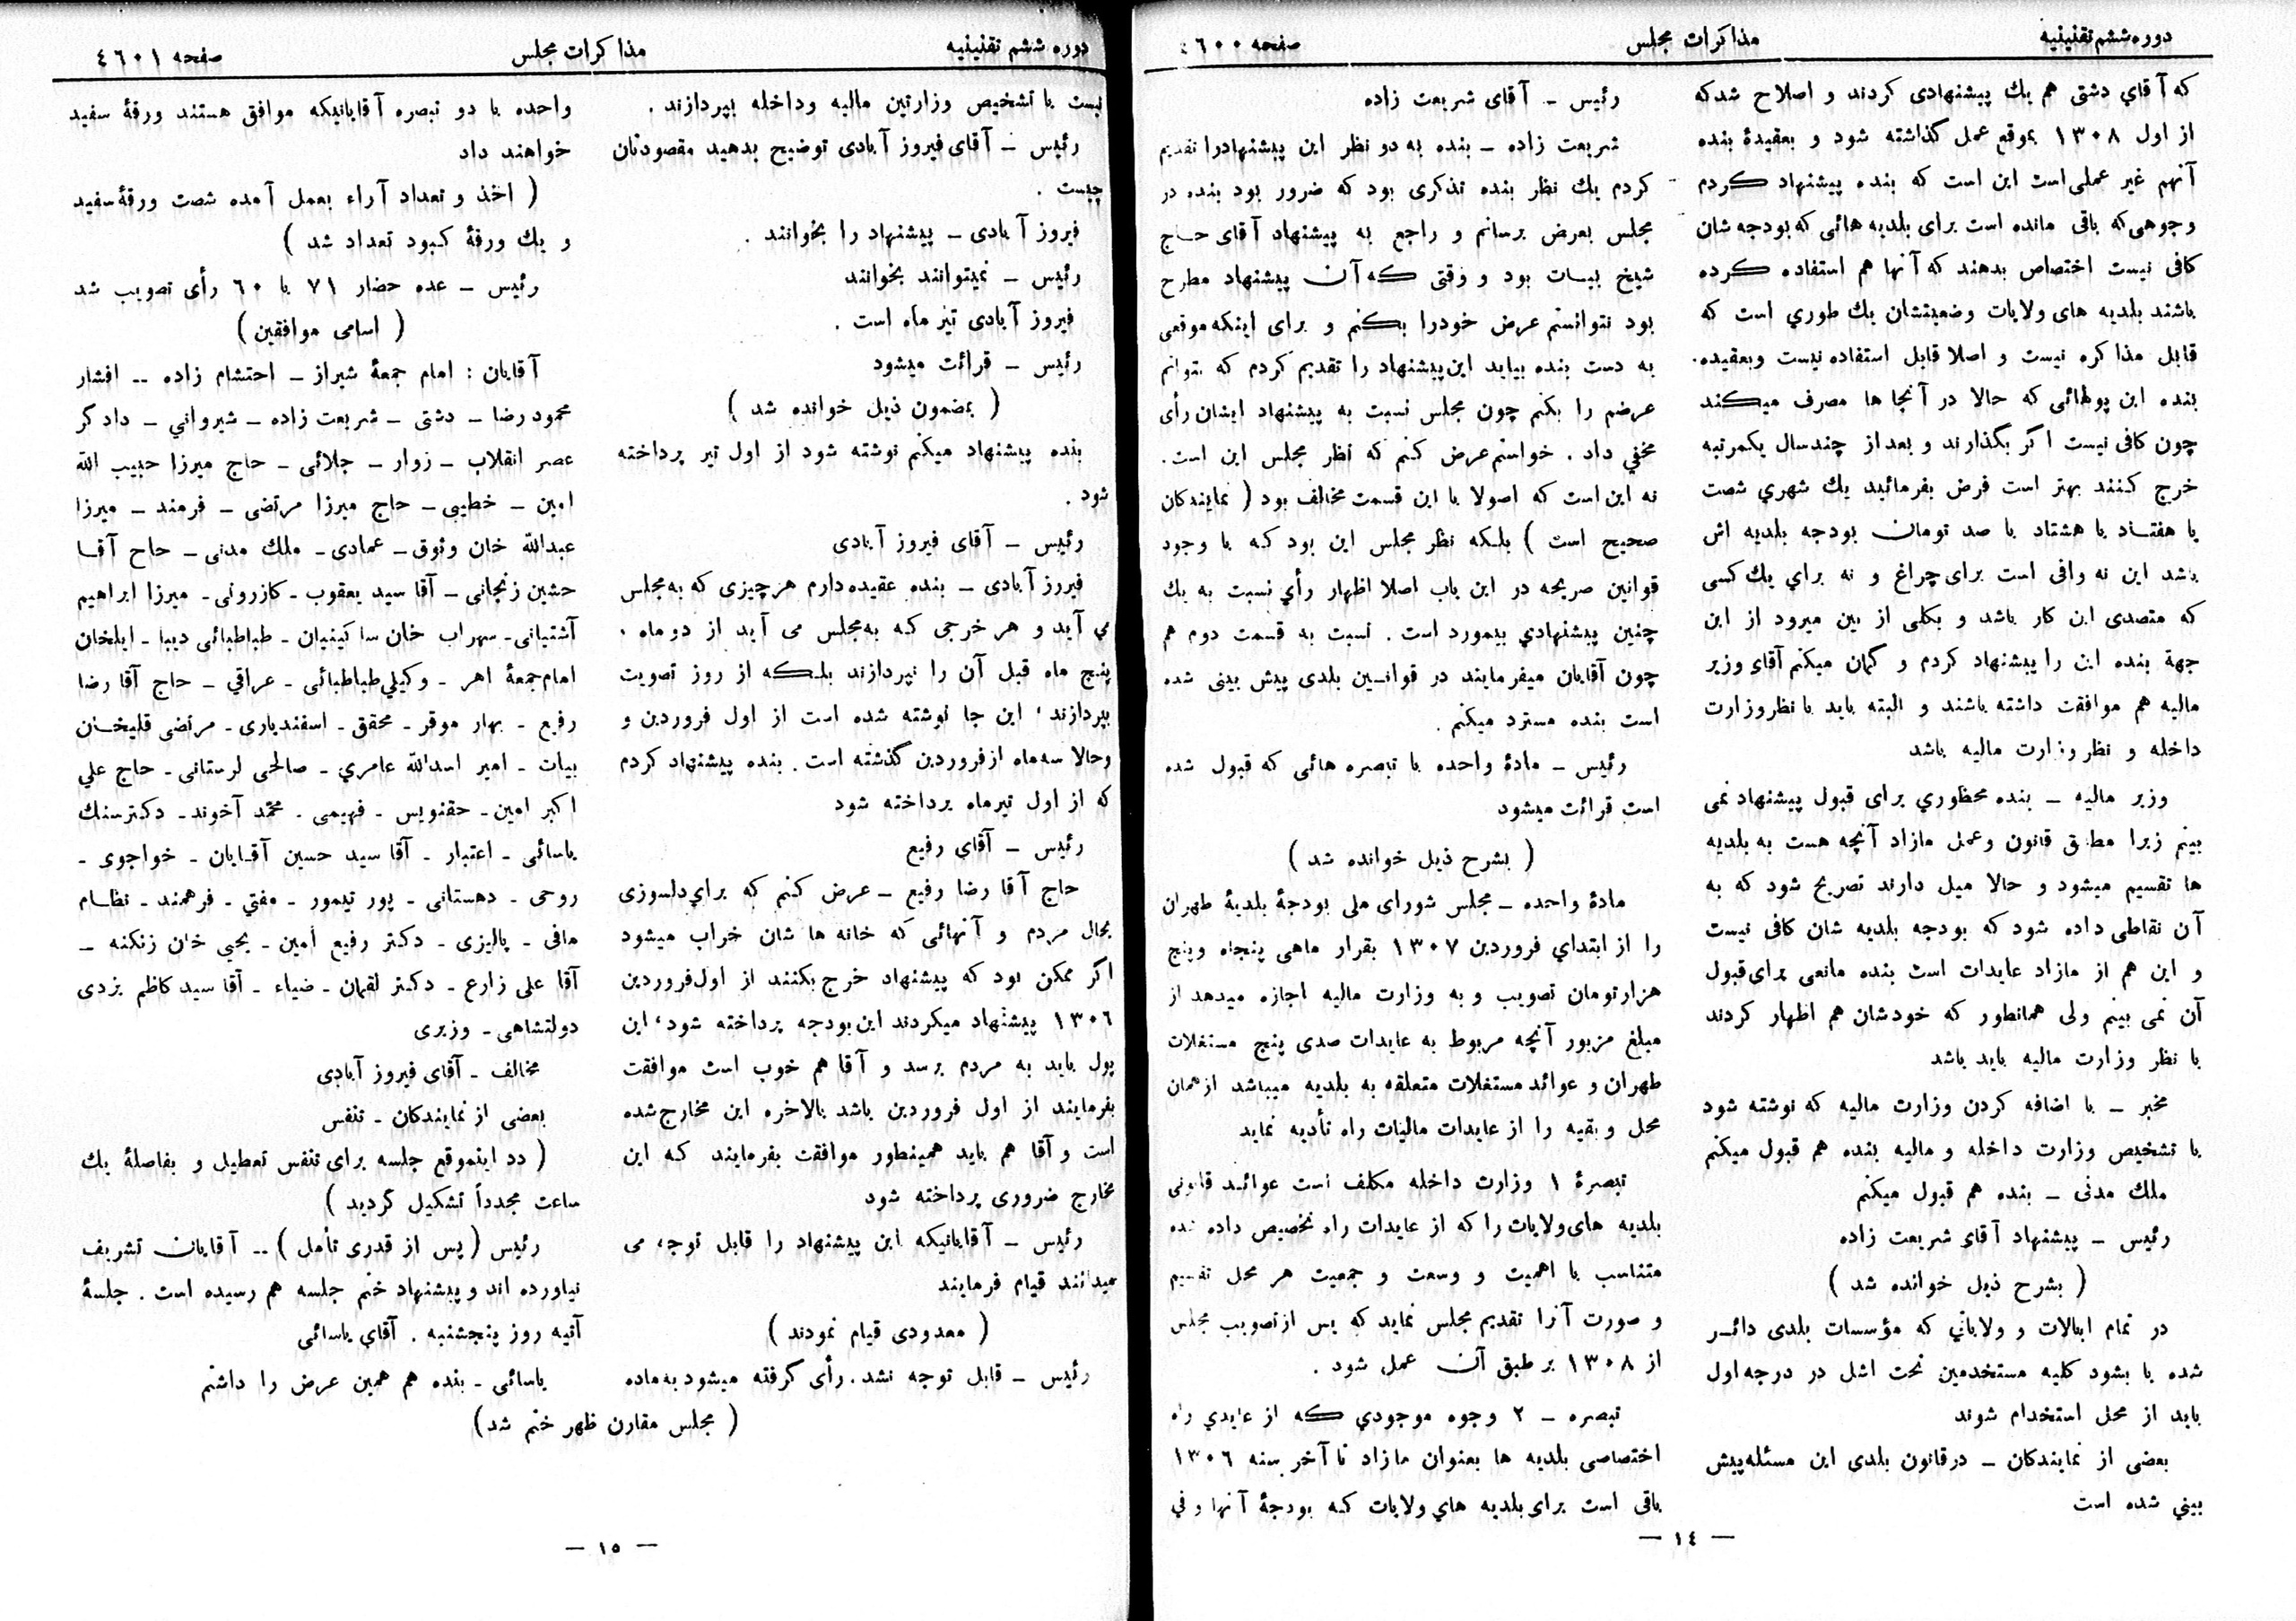 دوره ششم تقنینیه
مذاکرات مجلس
صفحه ٤٦٠٠
که آقای دشتی هم یك پیشنهادی کردند و اصلاح شد که
از اول ١٣٠٨ بموقع عمل گذاشته شود و بعقیدهٔ بنده
آنهم غیر عملی است این است که بنده پیشنهاد کردم
وجوهی که باقی مانده است برای بلدیه هائی که بودجه شان
کافی نیست اختصاص بدهند که آنها هم استفاده کرده
باشند بلدیه های ولایات وضعیتشان یك طوري است که
قابل مذاکره نیست و اصلا قابل استفاده نیست و بعقیده.
بنده این پولهائی که حالا در آنجا ها مصرف میکند
چون کافی نیست اگر بگذارند و بعد از چند سال یکمرتبه
خرج کنند بهتر است فرض بفرمائید یك شهري شصت
یا هفتاد یا هشتاد یا صد تومان بودجه بلدیه اش
باشد این نه وافی است برای چراغ و نه براي یك کسی
که متصدی این کار باشد و بکلی از بین میرود از این
جهة بنده این را پیشنهاد کردم و گمان میکنم آقای وزیر
مالیه هم موافقت داشته باشند و البته باید با نظر وزارت
داخله و نظر وزارت مالیه باشد
وزیر مالیه ــ بنده محظوري برای قبول پیشنهاد نمی
بینم زیرا مطابق قانون و عمل مازاد آنچه هست به بلدیه
ها تقسیم میشود و حالا میل دارند تصریح شود که به
آن نقاطی داده شود که بودجه بلدیه شان کافی نیست
و این هم از مازاد عایدات است بنده مانعی برای قبول
آن نمی بینم ولی همانطور که خودشان هم اظهار کردند
با نظر وزارت مالیه باید باشد
مخبر ــ با اضافه کردن وزارت مالیه که نوشته شود
با تشخیص وزارت داخله و مالیه بنده هم قبول میکنم
ملك مدنی ــ بنده هم قبول میکنم
رئیس ــ پیشنهاد آقای شریعت زاده
( بشرح ذیل خوانده شد )
در تمام ایالات و ولایاتي که مؤسسات بلدی دائر
شده یا بشود کلیه مستخدمین تحت اشل در درجه اول
باید از محل استخدام شوند
بعضی از نمایندکان ــ در قانون بلدی این مسئله پیش
بیني شده است
رئیس ــ آقای شریعت زاده
شریعت زاده ــ بنده به دو نظر این پیشنهاد را تقدیم
کردم یك نظر بنده تذکری بود که ضرور بود بنده در
مجلس بعرض برسانم و راجع به پیشنهاد آقای حاج
شیخ بیات بود و وقتی که آن پیشنهاد مطرح
بود نتوانستم عرض خودرا بکنم و برای اینکه موقعی
به دست بنده بیاید این پیشنهاد را تقدیم کردم که بتوانم
عرضم را بکنم چون مجلس نسبت به پیشنهاد ایشان رأی
مخفي داد . خواستم عرض کنم که نظر مجلس این است.
نه این است که اصولا با این قسمت مخالف بود ( نمایندکان
صحیح است ) بلکه نظر مجلس این بود که با وجود
قوانین صریحه در این باب اصلا اظهار رأي نسبت به یك
چنین پیشنهادي بیمورد است . نسبت به قسمت دوم هم
چون آقایان میفرمایند در قوانین بلدی پیش بینی شده
است بنده مسترد میکنم .
رئیس ــ مادهٔ واحده با تبصره هائی که قبول شده
است قرائت میشود
( بشرح ذیل خوانده شد )
مادهٔ واحده ــ مجلس شورای ملی بودجهٔ بلدیهٔ طهران
را از ابتداي فروردین ١٣٠٧ بقرار ماهی پنجاه و پنج
هزار تومان تصویب و به وزارت مالیه اجازه میدهد از
مبلغ مزبور آنچه مربوط به عایدات صدی پنج مستغلات
طهران و عوائد مستغلات متعلقه به بلدیه میباشد از همان
محل و بقیه را از عایدات مالیات راه تأدیه نماید
تبصرهٔ ١ وزارت داخله مکلف است عوائد قانونی
بلدیه های ولایات را که از عایدات راه تخصیص داده شده
متناسب با اهمیت و وسعت و جمعیت هر محل تقسیم
و صورت آنرا تقدیم مجلس نماید که پس از تصویب مجلس
از ١٣٠٨ بر طبق آن عمل شود .
تبصره ــ ٢ وجوه موجودي که از عایدي راه
اختصاصی بلدیه ها بعنوان مازاد تا آخر سنه ١٣٠٦
باقی است برای بلدیه هاي ولایات که بودجهٔ آنها وفی
ــ ١٤ ــ
دوره ششم تقنینیه
مذاکرات مجلس
صفحه ٤٦٠١
نیست با تشخیص وزارتین مالیه و داخله بپردازند .
رئیس ــ آقای فیروز آبادی توضیح بدهید مقصودتان
چیست .
فیروز آبادی ــ پیشنهاد را بخوانند .
رئیس ــ نمیتوانند بخوانند
فیروز آبادی تیر ماه است .
رئیس ــ قرائت میشود
( بمضمون ذیل خوانده شد )
بنده پیشنهاد میکنم نوشته شود از اول تیر پرداخته
شود .
رئیس ــ آقای فیروز آبادی
فیروز آبادی ــ بنده عقیده دارم هر چیزی که به مجلس
مي آید و هر خرجی که به مجلس می آید از دو ماه .
پنج ماه قبل آن را نپردازند بلکه از روز تصویت
بپردازند ، این جا نوشته شده است از اول فروردین و
وحالا سه ماه از فروردین گذشته است . بنده پیشنهاد کردم
که از اول تیرماه پرداخته شود
رئیس ــ آقای رفیع
حاج آقا رضا رفیع ــ عرض کنم که براي دلسوزی
بحال مردم و آنهائی که خانه ها شان خراب میشود
اگر ممکن بود که پیشنهاد خرج بکنند از اول فروردین
١٣٠٦ پیشنهاد میکردند این بودجه پرداخته شود ، این
پول باید به مردم برسد و آقا هم خوب است موافقت
بفرمایند از اول فروردین باشد بالاخره این مخارج شده
است و آقا هم باید همینطور موافقت بفرمایند که این
مخارج ضروری پرداخته شود
رئیس ــ آقایانیکه این پیشنهاد را قابل توجه می
میدانند قیام فرمایند
( معدودی قیام نمودند )
رئیس ــ قابل توجه نشد . رأی گرفته میشود به ماده
واحده با دو تبصره آقایانیکه موافق هستند ورقهٔ سفید
خواهند داد
( اخذ و تعداد آراء بعمل آمده شصت ورقهٔ سفید
و یك ورقهٔ کبود تعداد شد )
رئیس ــ عده حضار ٧١ با ٦٠ رأی تصویب شد
( اسامی موافقین )
آقایان : امام جمعهٔ شیراز ــ احتشام زاده ــ افشار
محمود رضا ــ دشتی ــ شریعت زاده ــ شیرواني ــ دادکر
عصر انقلاب ــ زوار ــ جلائی ــ حاج میرزا حبیب الله
امین ــ خطیبی ــ حاج میرزا مرتضی ــ فرمند ــ میرزا
عبدالله خان وثوق ــ عمادی ــ ملك مدنی ــ حاج آقا
حشین زنجانی ــ آقا سید یعقوب ـ کازرونی ـ میرزا ابراهیم
آشتیانی ـ سهراب خان ساکینیان ـ طباطبائی دیبا ـ ایلخان
امام جمعهٔ اهر ـ وکیلي طباطبائی ـ عراقي ــ حاج آقا رضا
رفیع ـ بهار موقر ـ محقق ـ اسفندیاری ـ مرتضی قلیخان
بیات ـ امیر اسدالله عامري ـ صالحی لرستانی ـ حاج علي
اکبر امین ـ حقنویس ـ فهیمی . محمد آخوند ـ دکترسنك
یاسائی ـ اعتبار ـ آقا سید حسین آقایان ـ خواجوی ـ
روحی ـ دهستانی ـ پور تیمور ـ مفتي ـ فرهمند ـ نظام
مافی ـ پالیزی ـ دکتر رفیع امین ـ یحیي خان زنکنه ــ
آقا علی زارع ـ دکتر لقمان ـ ضیاء ـ آقا سید کاظم یزدی
دولتشاهی ـ وزیری
مخالف ـ آقای فیروز آبادی
بعضی از نمایندکان ـ تنفس
( دد اینموقع جلسه برای تنفس تعطیل و بفاصلهٔ یك
ساعت مجدداً تشکیل گردید )
رئیس ( پس از قدری تأمل ) ــ آقایان تشریف
نیاورده اند و پیشنهاد ختم جلسه هم رسیده است . جلسهٔ
آتیه روز پنجشنبه . آقاي یاسائی
یاسائی ـ بنده هم همین عرض را داشتم
( مجلس مقارن ظهر ختم شد )
ــ ١٥ ــ